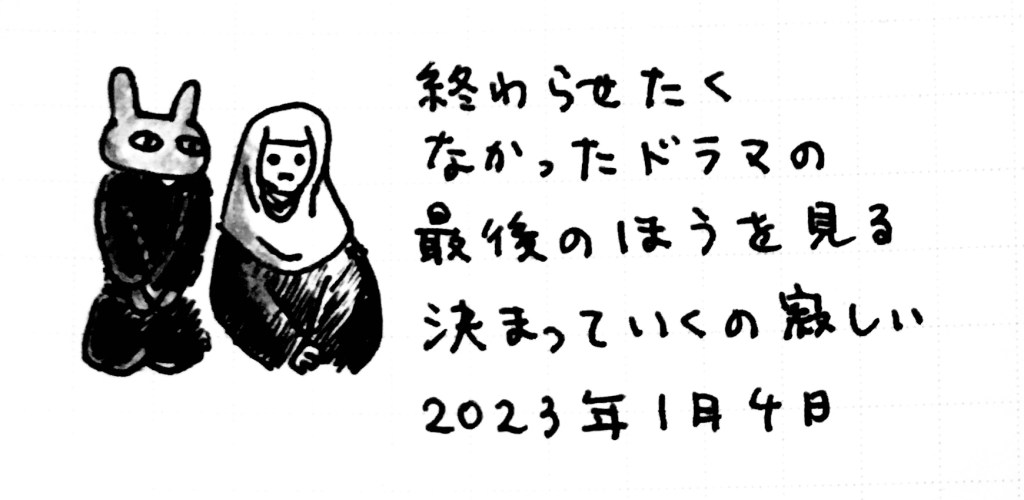 終わらせたく
なかったドラマの
最後のほうを見る
決まっていくの寂しい
2023年1月4日